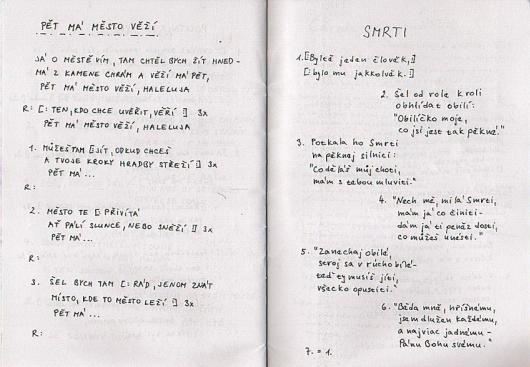 PĚT MÁ MĚSTO VĚŽÍ
JÁ O MĚSTĚ VÍM, TAM CHTĚL BYCH ŽÍT HNED-
MÁ Z KAMENE CHRÁM A VĚŽÍ MÁ PĚT,
PĚT MÁ MĚSTO VĚŽÍ, HALELUJA
R: [: TEN, KDO CHCE UVĚŘIT, VĚŘÍ :] 3x
PĚT MÁ MĚSTO VĚŽÍ, HALELUJA
1. MŮŽEŠ TAM [: JÍT, ODKUD CHCEŠ
A TVOJE KROKY HRADBY STŘEŽÍ :] 3x
PĚT MÁ ...
R:
2. MĚSTO TE [: PŘIVÍTÁ
AŤ PÁLÍ SLUNCE, NEBO SNĚŽÍ :] 3x
PĚT MÁ ...
R:
3. ŠEL BYCH TAM [: RÁD, JENOM ZNÁT
MÍSTO, KDE TO MĚSTO LEŽÍ :] 3x
PĚT MÁ ...
R:
SMRTI
1. [: Byl jeden člověk, :]
[: bylo mu jakkolvěk. :]
2. Šel od role k roli
obhlídat obilí:
"Obilíčko moje,
co jsi jest tak pěkné."
3. Potkala ho Smrti
na pěknej silnici:
"Co děláš můj choti,
mám s tebou mluviti."
4. "Nech mě, milá Smrti,
mám já co činiti-
dám já ti peněz dosti,
co můžeš unésti."
5. "Zanechaj obilé,
stroj sa v rúcho bílé-
teď ty musíš jíti,
všecko opustiti."
6. "Běda mně, hříšnému,
jsem dlužen každému,
a najviac jadnému-
Pánu Bohu svému."
7. = 1.